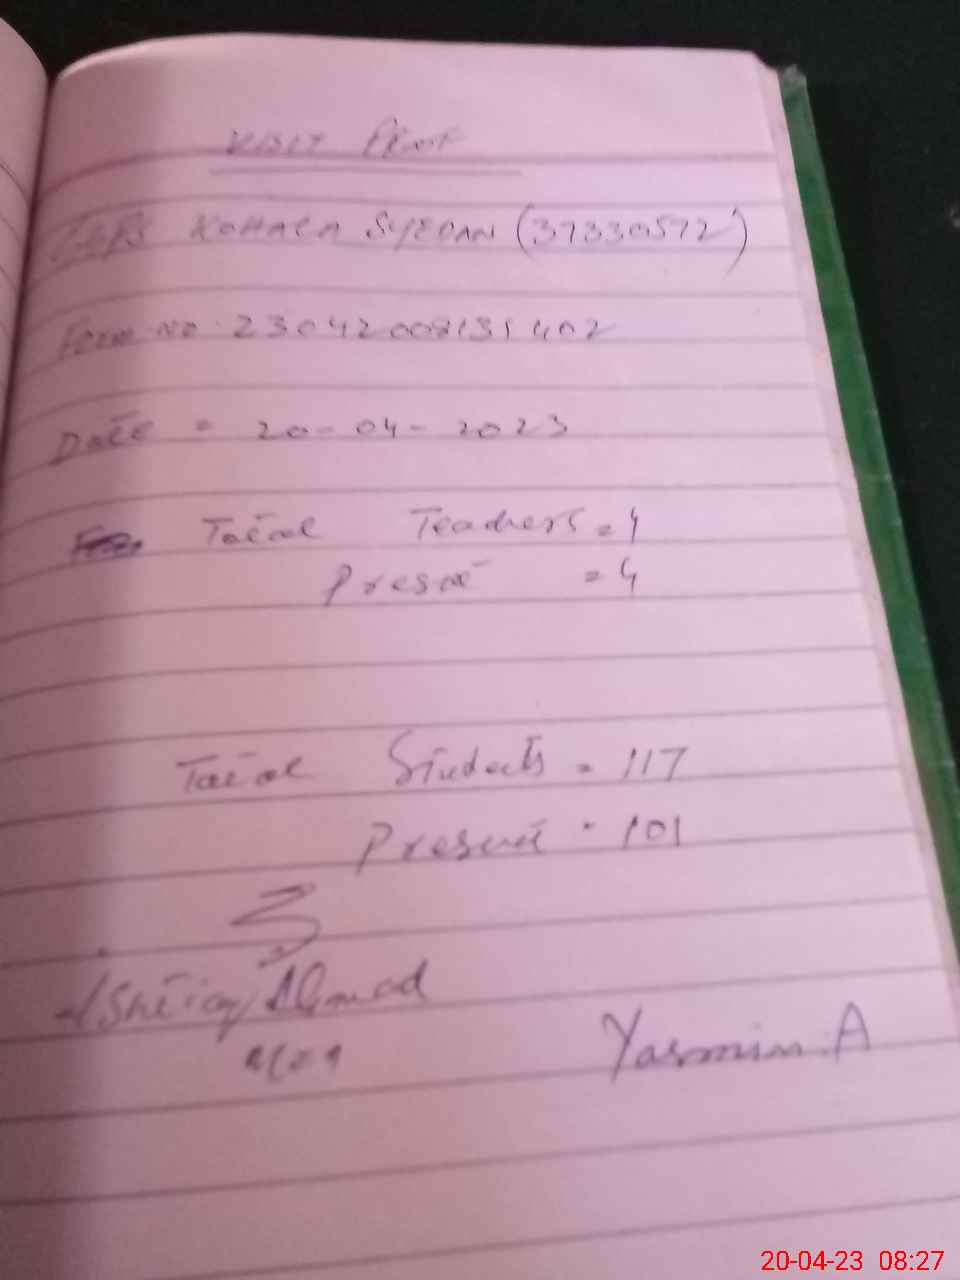 Visit Proof
GGPS KOHALA SYEDAN (37330572)
Form No. 23042008131402
Date = 20-04-2023
Total Teachers = 4
Present = 4
Total Students = 117
Present = 101
Ishtiaq Ahmad
Yasmin. A
20-04-23 08:27